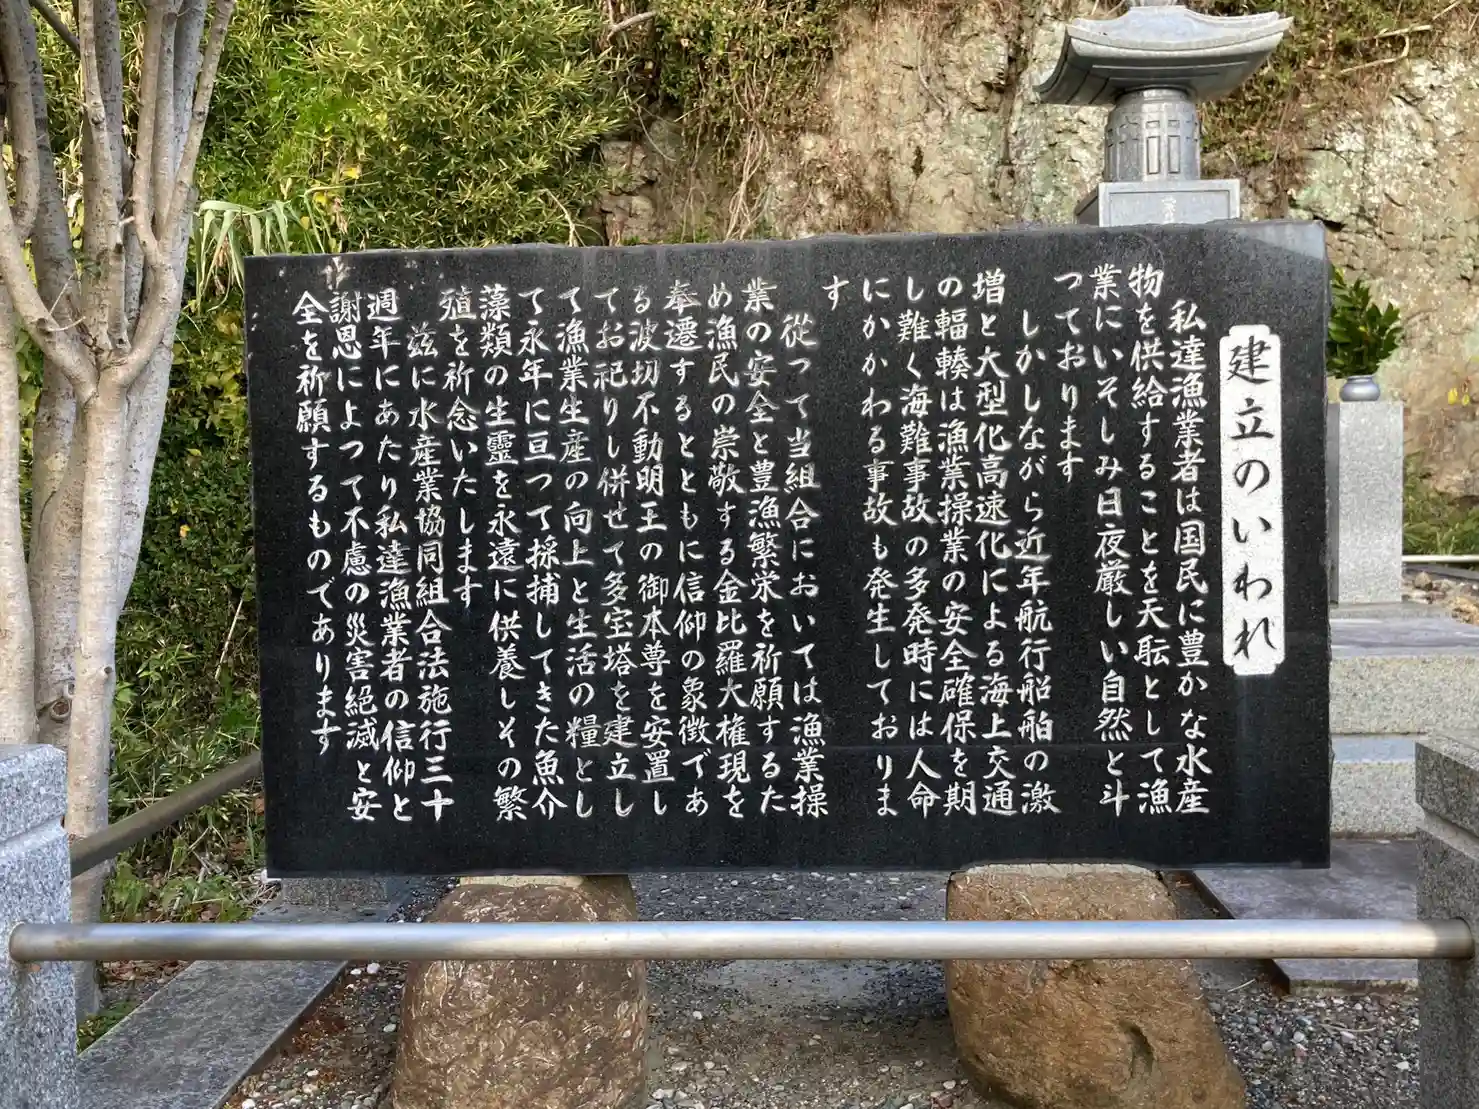 建立のいわれ
私達漁業者は国民に豊かな水産
物を供給することを天耺として漁
業にいそしみ日夜厳しい自然と斗
つております
しかしながら近年航行船舶の激
増と大型化高速化による海上交通
の輻輳は漁業操業の安全確保を期
し難く海難事故の多発時には人命
にかかわる事故も発生しておりま
す
從つて当組合においては漁業操
業の安全と豊漁繁栄を祈願するた
め漁民の崇敬する金比羅大権現を
奉遷するとともに信仰の象徴であ
る波切不動明王の御本尊を安置し
てお祀りし併せて多宝塔を建立し
て漁業生産の向上と生活の糧とし
て永年に亘つて採捕してきた魚介
藻類の生靈を永遠に供養しその繁
殖を祈念いたします
茲に水産業協同組合法施行三十
週年にあたり私達漁業者の信仰と
謝恩によつて不慮の災害絕滅と安
全を祈願するものであります